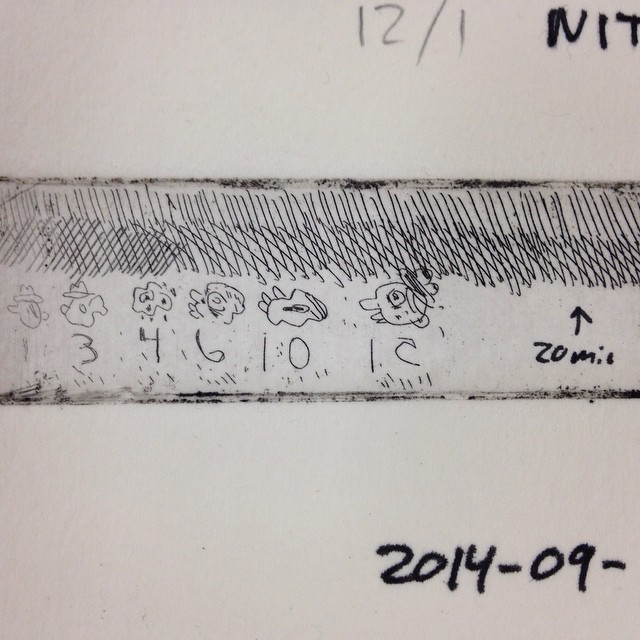 12/1 NIT
3 4 6 10
20 min
2014-09-